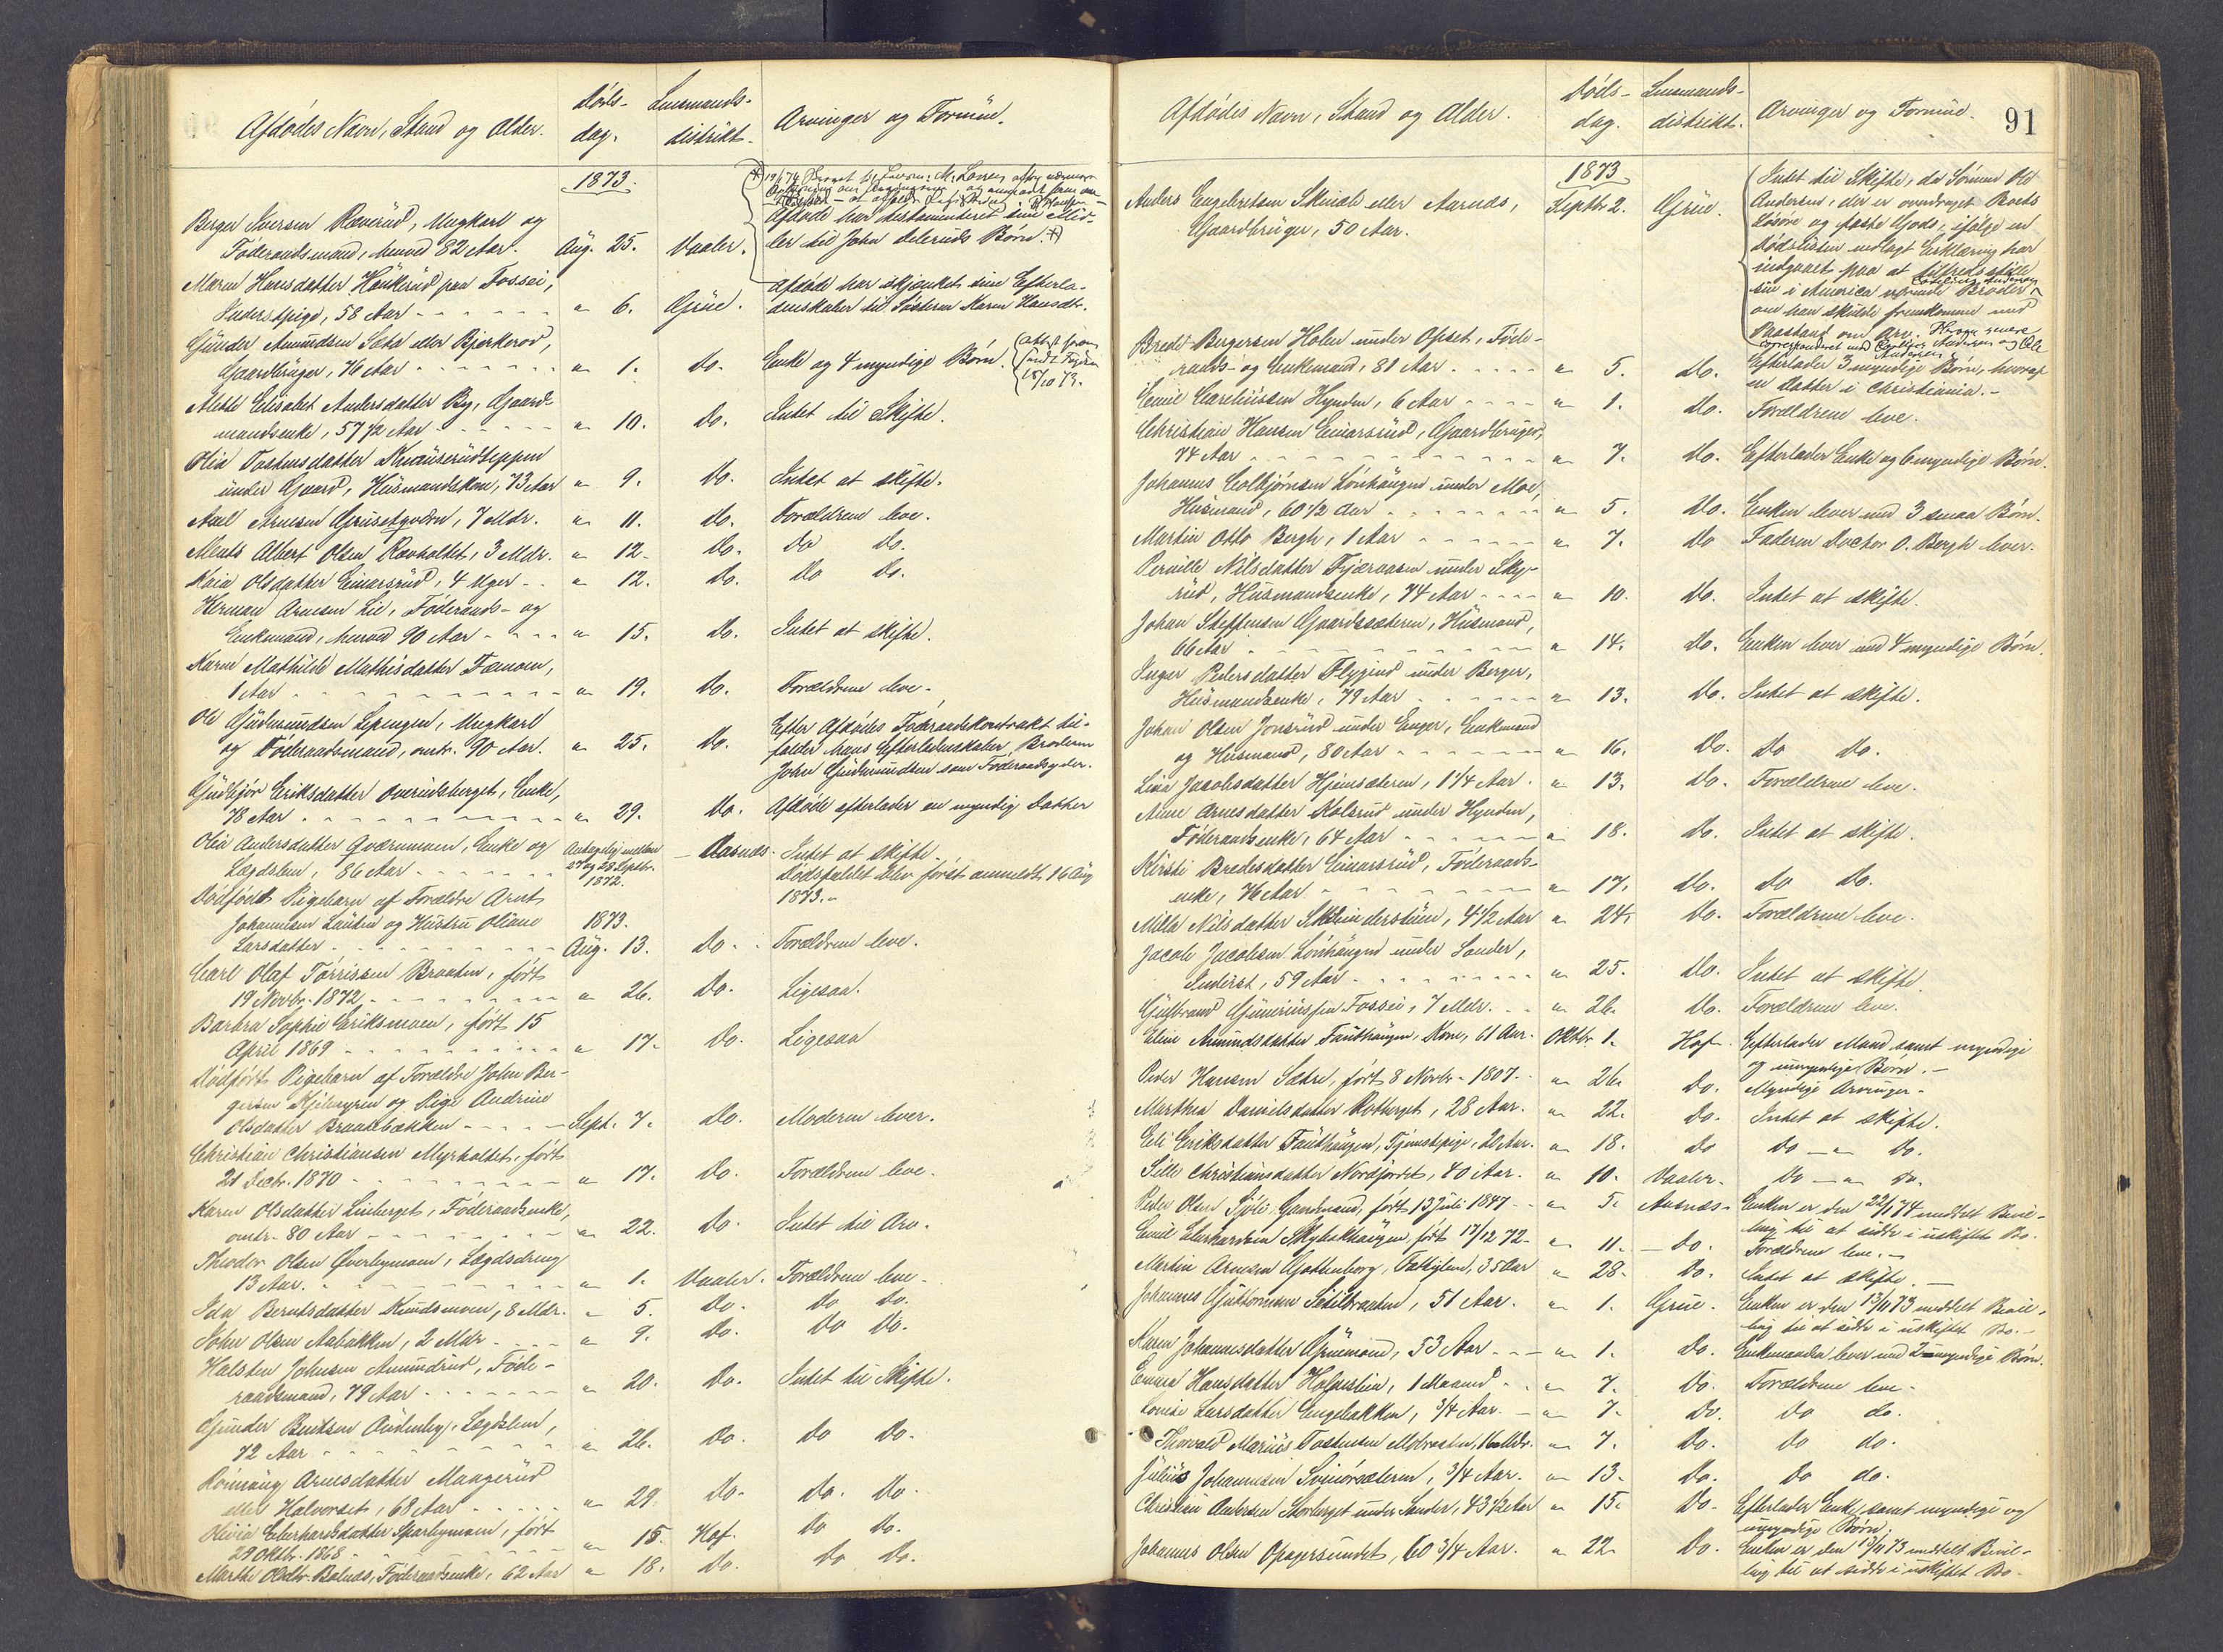 Afdødes Navn, Stand og Alder.
Døds-
dag.
Lensmands-
distrikt.
Arvinger og Formue.
1873.
Berger Iversen Ræverud, Ungkarl og
Føderaadsmand, henved 82 Aar.
Aug. 25.
Vaaler.
Afdøde har testamenteret sine Mid-
ler til John Beleruds Børn.
Maren Hansdatter Haukerud paa Fossei,
Inderstpige, 58 Aar
" 6.
Grue.
Afdøde har skjenket sine Efterla-
denskaber til Søsteren Karen Hansdtr.
Gunder Amundsen Sætre eller Bjerkerod,
Gaardbruger, 76 Aar
" 1.
Do.
Enke og 4 myndige Børn.
15/10 73.
Mette Elisabet Andersdatter By, Gaard-
mandsenke, 57 1/2 Aar
" 10.
Do.
Intet til Skifte.
Olia Tostensdatter Knauserudseppen
under Gaard, Husmandskone, 73 Aar
" 9.
Do.
Intet at skifte.
Axel Arnesen Grue Aqvdrn, 7 Mdr.
" 11.
Do.
Forældrene leve.
Ments Albert Olsen Revholtet, 3 Mdr.
" 12.
Do.
Do Do.
Kaia Olsdatter Einarsrud, 4 Uger
" 12.
Do.
Do Do.
Herman Arnesen Lie, Føderaads- og
Enkemand, henved 90 Aar
" 15.
Do.
Intet at skifte.
Karen Mathilde Mathisdatter Tamoen,
1 Aar
" 19.
Do.
Forældrene leve.
Ole Gudmundsen Løpengen, Ungkarl
og Føderaadsmand, omtr. 90 Aar.
" 25.
Do.
Efter Afdødes Føderaadskontrakt til-
falder hans Efterladenskaber, Broderen
John Gudmundsen som Føderaadsyder.
Gudbjør Eriksdatter Overudsberget, Enke,
78 Aar
" 29.
Do.
Afdøde efterlader en myndig Datter
Olia Andersdatter Qværnmoen, Enke og
Lægdslem, 86 Aar
Antagelig mellem
27 og 28 Septbr.
1872.
Aasnæs.
Intet at skifte.
Dødsfaldet blev først anmeldt 16 Aug
1873.
Dødfødt Pigebarn af Forældre Arnt
Johannesen Lauten og Hustru Oliane
Larsdatter
1873.
Aug. 13.
Do.
Forældrene leve.
Carl Olaf Tørrissen Braaten, født
19 Novbr. 1872
" 26.
Do.
Ligesaa.
Barbra Sophie Eriksmoen, født 15
April 1869
" 17.
Do.
Ligesaa
Dødfødt Pigebarn af Forældre John Ber-
gersen Kjølmyren og Pige Andrine
Olsdatter Brændbækken
Sept. 7.
Do.
Moderen lever.
Christian Christiansen Myrholtet, født
21 Decbr. 1870
" 17.
Do.
Forældrene leve.
Karen Olsdatter Linberget, Føderaadsenke,
omtr. 80 Aar
" 22.
Do.
Intet til Arv.
Theodor Olsen Øverbymoen, Lægdsdreng
13 Aar.
" 1.
Vaaler.
Forældrene leve.
Ida Berntsdatter Knudsmoen, 8 Mdr.
" 5.
Do.
Do Do.
John Olsen Aabakken, 2 Mdr
" 9.
Do.
Do Do.
Halsten Johnsen Amundrud, Føde-
raadsmand, 79 Aar
" 20.
Do.
Intet til Skifte.
Gunder Bentsen Audenby, Lægdslem,
72 Aar
" 26.
Do.
Do Do.
Rønnaug Arnesdatter Mangerud
eller Halvorset, 68 Aar
" 29.
Do.
Do. Do.
Olivia Eberhardsdatter Sparbymoen, født
29 Oktbr. 1868
" 15.
Hof.
Do Do.
Marthe Olsdtr. Balnes, Føderaadsenke, 62 Aar
" 18.
Do.
Do Do.
91
Afdødes Navn, Stand og Alder.
Døds-
dag.
Lensmands-
distrikt.
Arvinger og Formue.
1873.
Anders Engebretsen Skinæb eller Aarnæs,
Gaardbruger, 50 Aar.
Septbr 2.
Grue.
Intet til Skifte, da Sønnen Ole
Andersen, der er overdraget Boets
Løsøre og faste Gods, ifølge en
Dødslisten vedlagt Erklæring har
indgaaet paa at tilfredsstille
sin i America værende Broder
om han skulde fremkomme med
Paastand om Arv.
Brede Bergersen Holen under Opset, Føde-
raads- og Enkemand, 81 Aar
" 5.
Do.
Efterlader 3 myndige Børn, hvoraf
en Datter i Christiania.
Emil Careliussen Hynden, 6 Aar
" 1.
Do.
Forældrene leve.
Christian Hansen Einarsrud, Gaardbruger,
74 Aar
" 7.
Do.
Efterlader Enke og 6 myndige Børn.
Johannes Colbjørnsen Lønhaugen under Moe,
Husmand, 60 1/2 Aar
" 5.
Do.
Enken lever med 3 smaa Børn.
Martin Otto Bergh, 1 Aar
" 7.
Do
Faderen Doctor O. Bergh lever.
Pernille Nilsdatter Fjæraasen under Sky-
rud, Husmandsenke, 74 Aar
" 10.
Do.
Intet at skifte.
Johan Steffensen Gaardssæteren, Husmand,
66 Aar
" 14.
Do.
Enken lever med 4 myndige Børn.
Inger Pedersdatter Flygind under Berger,
Husmandsenke, 79 Aar
" 13.
Do.
Intet at skifte.
Johan Olsen Jonsrud under Enger, Enkemand
og Husmand, 80 Aar
" 16.
Do.
Do Do.
Lina Jacobsdatter Hjemsæteren, 1 1/4 Aar.
" 13.
Do.
Forældrene leve.
Anne Arnesdatter Kolsrud under Hynden,
Føderaadsenke, 64 Aar
" 18.
Do.
Intet at skifte.
Kirsti Bredesdatter Einarsrud, Føderaads-
enke, 76 Aar
" 17.
Do.
Do Do.
Milla Nilsdatter Skinderstuen, 4 1/2 Aar
" 24.
Do.
Forældrene leve.
Jacob Jacobsen Lønhaugen under Sander,
Inderst, 59 Aar
" 25.
Do.
Intet at skifte.
Gulbrand Gunerius sen Fossei, 7 Mdr.
" 26.
Do.
Forældrene leve.
Eline Amundsdatter Fauthaugen, Kone, 61 Aar.
Oktbr 1.
Hof.
Efterlader Mand samt myndige
og umyndige Børn.
Peder Hansen Sætre, født 8 Novbr. 1807.
" 26.
Do.
Myndige Arvinger.
Marthea Danielsdatter Rotberget, 28 Aar.
" 22.
Do.
Intet at skifte.
Eli Eriksdatter Fauthaugen, Tjenestpige, 20 Aar.
" 18.
Do
Do " Do.
Sille Christiansdatter Nordfjordet, 40 Aar.
" 10.
Vaaler.
Do " Do.
Peder Olsen Sjøli, Gaardmand, født 13 Juli 1847
" 5.
Aasnæs.
Enken er den 22/1 74 meddelt Bevil-
ling til at sidde i uskiftet Bo.
Emil Eberhardsen Skybakhaugen, født 17/12 72.
" 11.
Do.
Forældrene leve.
Martin Arnesen Gottenborg, Fattiglem, 35 Aar
" 28.
Do.
Intet at skifte.
Johannes Guttormsen Sætilbraaten, 51 Aar.
" 1.
Grue.
Enken er den 13/11 73 meddelt Bevil-
ling til at sidde i uskiftet Bo.
Karen Johannesdatter Gruemoen, 53 Aar
" 1.
Do.
Enkemanden lever med 2 umyndige Børn.
Emma Hansdatter Hofoslien, 1 Maaned
" 7.
Do.
Forældrene leve.
Louise Larsdatter Engebakken, 3/4 Aar.
" 7.
Do.
Do do.
Thorvald Marius Tostensen Mobraaten, 16 Mdr.
" 7.
Do.
Do do.
Julius Johannesen Svenørsæteren, 3/4 Aar.
" 13.
Do.
Do do.
Christian Andersen Storberget under Sander, 43 1/2 Aar
" 15.
Do.
Efterlader Enke samt myndige og
umyndige Børn.
Johannes Olsen Opagersundet, 60 3/4 Aar.
" 22.
Do.
Enken er den 13/11 73 meddelt Bevil-
ling til at sidde i uskiftet Bo.